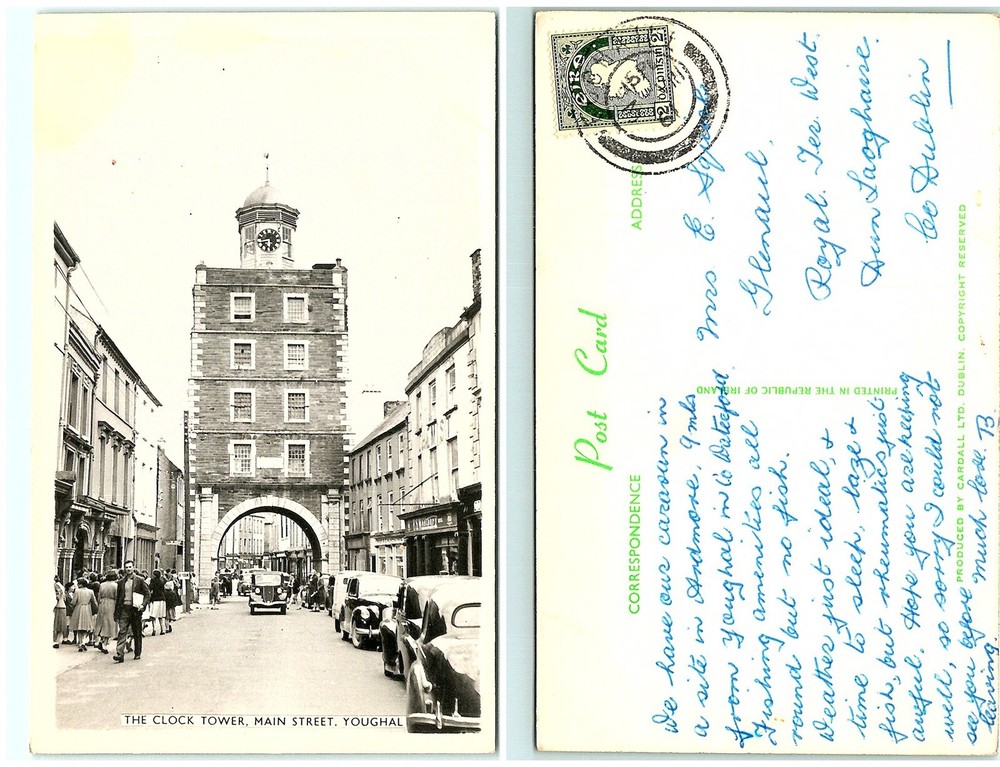 THE CLOCK TOWER, MAIN STREET, YOUGHAL
Post Card
CORRESPONDENCE
ADDRESS
ÉIRE
2 PINGIN 2
We have our caravan in
a site in Ardmore. 9 mls
from Youghal in Co Waterford
Fishing amenities all
round but no fish.
Weather just ideal, &
time to sleep, laze &
fish, but rheumatics just
awful. Hope you are keeping
well, so sorry I could not
see you before
leaving. Much love. B
Mrs C
Glenaul.
Royal. Ter. West.
Dun Laoghaire.
Co Dublin
PRINTED IN THE REPUBLIC OF IRELAND
PRODUCED BY CARDALL LTD. DUBLIN. COPYRIGHT RESERVED